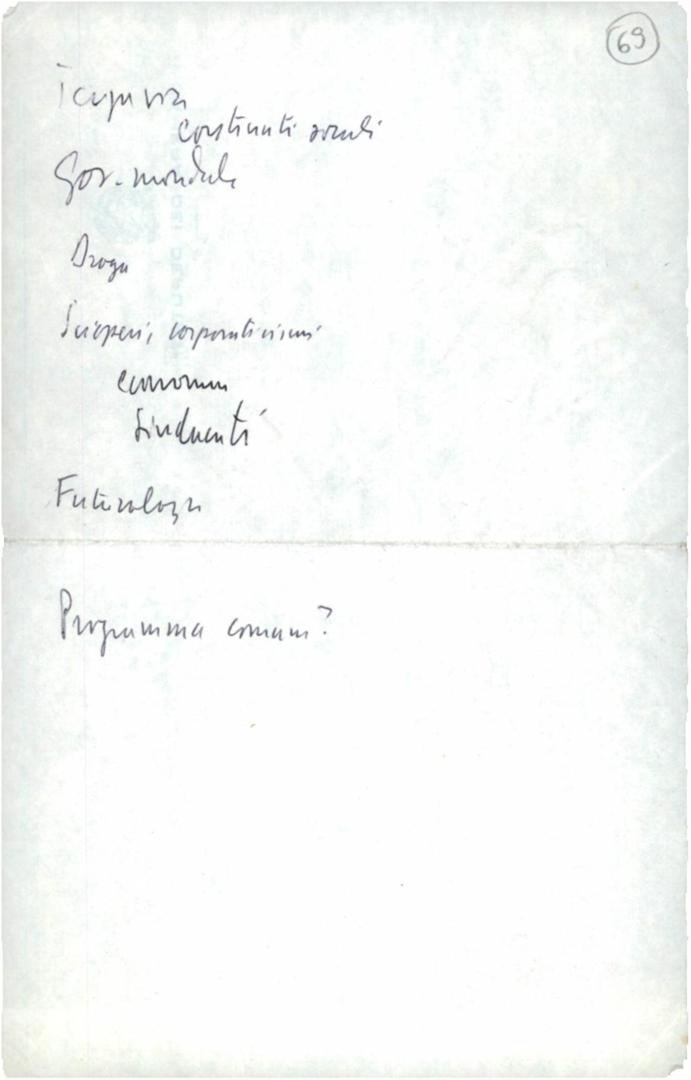 69
costituenti sociali
Gov. mondiale
Droga
Scioperi, corporativismi
economia
Sindacati
Futurologia
Programma comune?